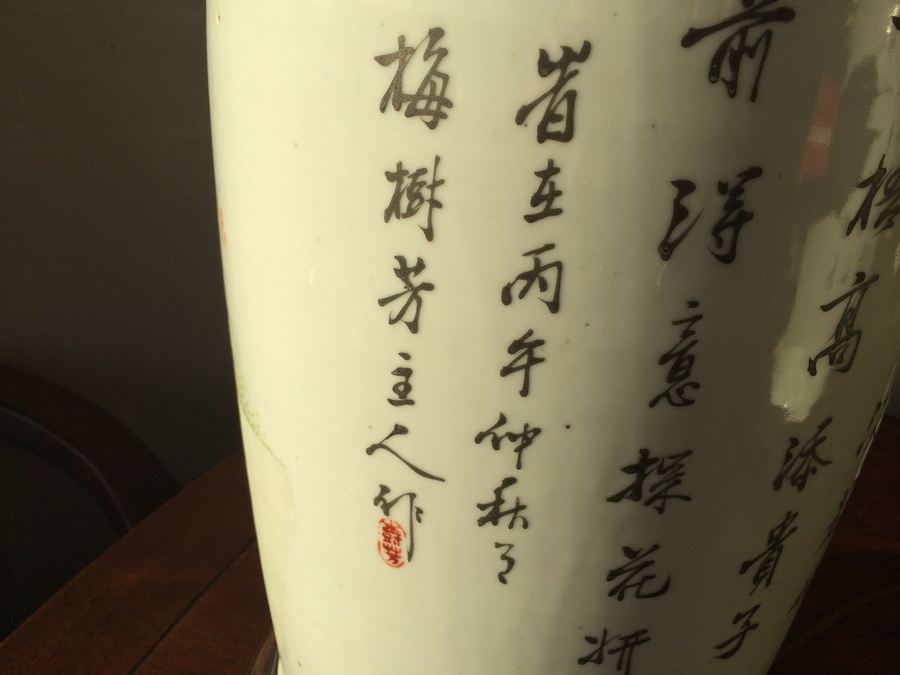 高添貴子
前得意探花妍
峕在丙午仲秋月
梅樹芳主人作